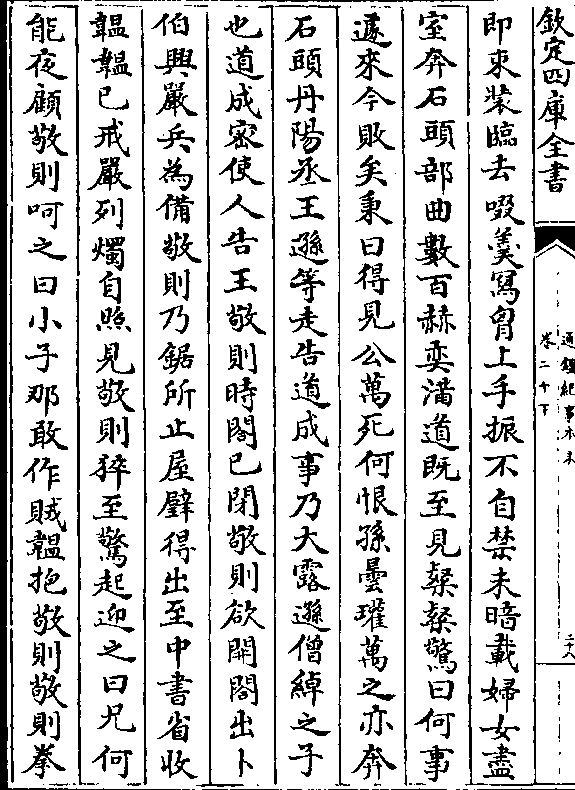 欽定四庫全書
通鑑紀事本末
卷二十下
二十八
即束裝臨去啜羮寫胷上手振不自禁未暗載婦女盡
室奔石頭部曲數百赫奕滿道既至見粲粲驚曰何事
遽來今敗矣秉曰得見公萬死何恨孫曇瓘萬之亦奔
石頭丹陽丞王遜等走告道成事乃大露遜僧綽之子
也道成密使人告王敬則時閤已閉敬則欲開閤出卜
伯興嚴兵為備敬則乃鋸所止屋壁得出至中書省收
韞韞已戒嚴列燭自照見敬則猝至驚起迎之曰兄何
能夜顧敬則呵之曰小子那敢作賊韞抱敬則敬則拳